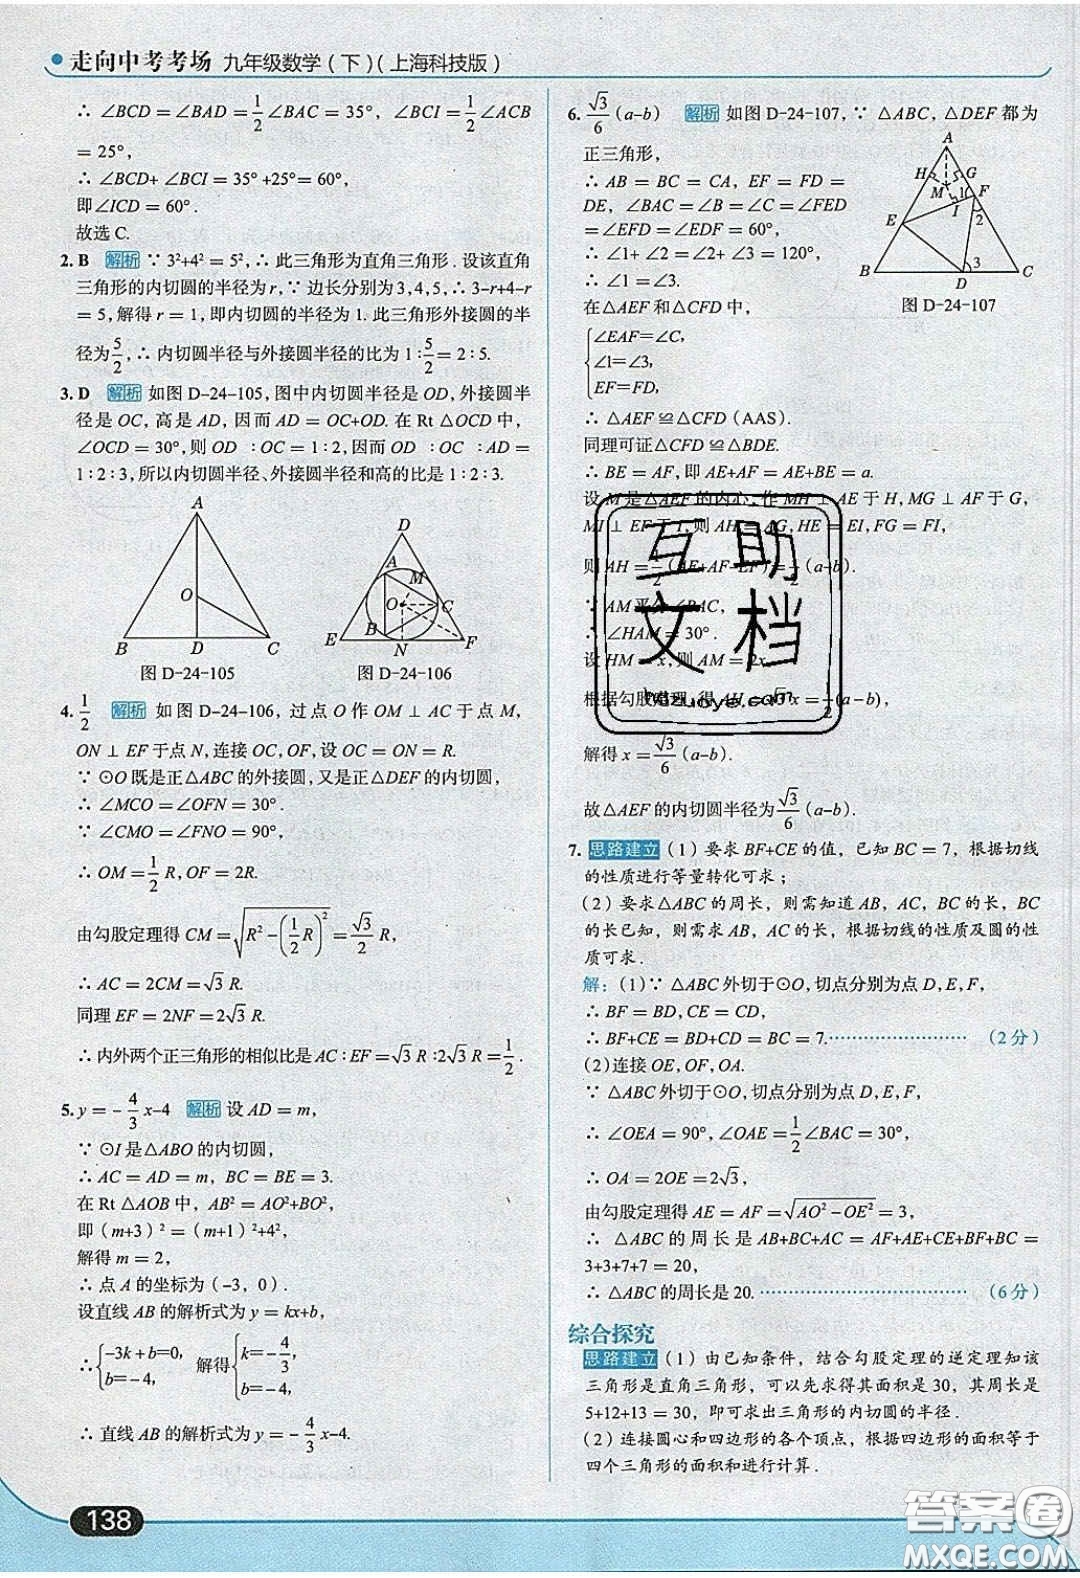 走向中考考场 九年级数学(下)(上海科技版)
∴ ∠BCD = ∠BAD = 1/2 ∠BAC = 35°, ∠BCI = 1/2 ∠ACB
= 25°,
∴ ∠BCD+ ∠BCI = 35° +25°= 60°,
即∠ICD = 60°.
故选C.
2. B 解析 ∵ 3²+4² = 5²,∴ 此三角形为直角三角形.设该直角
三角形的内切圆的半径为r,∵ 边长分别为3,4,5,∴ 3-r+4-r
= 5,解得r = 1,即内切圆的半径为1.此三角形外接圆的半
径为5/2,∴ 内切圆半径与外接圆半径的比为1∶5/2 = 2∶5.
3. D 解析 如图D-24-105,图中内切圆半径是OD,外接圆半
径是OC,高是AD,因而AD = OC+OD.在Rt △OCD中,
∠OCD = 30°,则OD ∶OC = 1∶2,因而OD ∶OC ∶AD =
1∶2∶3,所以内切圆半径、外接圆半径和高的比是1∶2∶3.
A
O
B D C
图D-24-105
D
A M
O C
B
E N F
图D-24-106
4. 1/2 解析 如图D-24-106,过点O作OM ⊥ AC于点M,
ON ⊥ EF于点N,连接OC,OF,设OC = R.
∵ ⊙O既是正△ABC的外接圆,又是正△DEF的内切圆,
∴ ∠MCO = ∠OFN = 30°.
∵ ∠CMO = ∠FNO = 90°,
∴ OM = 1/2 R,OF = 2R.
由勾股定理得CM = √(R²-(1/2 R)²) = √3/2 R,
∴ AC = 2CM = √3 R.
同理EF = 2NF = 2√3 R.
∴ 内外两个正三角形的相似比是AC∶EF = √3 R∶2√3 R = 1/2.
5. y = - 4/3 x-4 解析 设AD = m,
∵ ⊙I是△ABO的内切圆,
∴ AC = AD = m, BC = BE = 3.
在Rt △AOB中,AB² = AO²+BO²,
即(m+3)² = (m+1)²+4²,
解得m = 2,
∴ 点A的坐标为(-3,0).
设直线AB的解析式为y = kx+b,
∴ {-3k+b=0, b=-4, 解得 {k=-4/3, b=-4.
∴ 直线AB的解析式为y = - 4/3 x-4.
6. √3/6 (a-b) 解析 如图D-24-107,∵ △ABC,△DEF都为
正三角形,
∴ AB = BC = CA,EF = FD =
DE,∠BAC = ∠B = ∠C = ∠FED
= ∠EFD = ∠EDF = 60°,
∴ ∠1+ ∠2 = ∠2+ ∠3 = 120°,
∴ ∠1 = ∠3.
A
H G
M 1 F
I
E 2
3
B D C
图D-24-107
在△AEF和△CFD中,
{∠EAF=∠C,
∠1=∠3,
EF=FD,
∴ △AEF ≌△CFD(AAS).
同理可证△CFD ≌△BDE.
∴ BE = AF,即AE+AF = AE+BE = a.
设M是△AEF的内心,作MH ⊥ AE于H,MG ⊥ AF于G,
MI ⊥ EF于I,则AH = AG,HE = EI,FG = FI,
则AH = 1/2 (AE+AF-EF) = 1/2 (a-b).
∵ AM平分∠BAC,
∴ ∠HAM = 30°.
设HM = x,则AM = 2x,
根据勾股定理,得AH = √3 x = 1/2 (a-b),
解得x = √3/6 (a-b).
故△AEF的内切圆半径为√3/6 (a-b).
7. 思路建立 (1)要求BF+CE的值,已知BC = 7,根据切线
的性质进行等量转化可求;
(2)要求△ABC的周长,则需知道AB,AC,BC的长,BC
的长已知,则需求AB,AC的长,根据切线的性质及圆的性
质可求.
解:(1)∵ △ABC外切于⊙O,切点分别为点D,E,F,
∴ BF = BD,CE = CD,
∴ BF+CE = BD+CD = BC = 7.…………………(2分)
(2)连接OE,OF,OA.
∵ △ABC外切于⊙O,切点分别为点D,E,F,
∴ ∠OEA = 90°,∠OAE = 1/2 ∠BAC = 30°,
∴ OA = 2OE = 2√3,
由勾股定理得AE = AF = √(AO²-OE²) = 3,
∴ △ABC的周长是AB+BC+AC = AF+AE+CE+BF+BC =
3+3+7+7 = 20,
∴ △ABC的周长是20.…………………………(6分)
综合探究
思路建立 (1)由已知条件,结合勾股定理的逆定理知该
三角形是直角三角形,可以先求得其面积是30,其周长是
5+12+13 = 30,即可求出三角形的内切圆的半径.
(2)连接圆心和四边形的各个顶点,根据四边形的面积等于
四个三角形的面积和进行计算.
138
互助
文档
答案圈
MXQE.COM